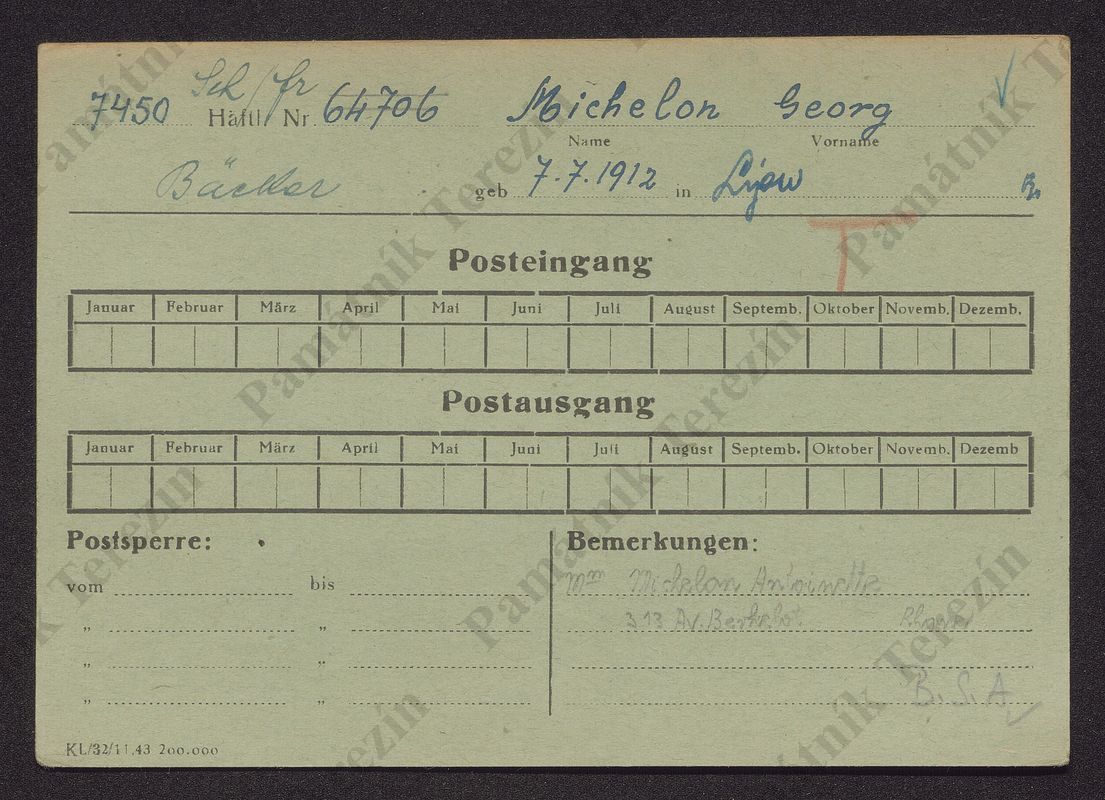 Sch/fr
7450 Häftl. Nr. 64706 Michelon Georg
Name Vorname
Bäcker geb 7.7.1912 in
Posteingang
Januar Februar März April Mai Juni Juli August Septemb. Oktober Novemb. Dezemb.
Postausgang
Januar Februar März April Mai Juni Juli August Septemb. Oktober Novemb. Dezemb
Postsperre: Bemerkungen:
vom bis Mm Michelon Antoinette
„ „ 313 Av. Berthelot
„ „
„ „ B.S.A
T
KL/32/11.43 200.000
Památník Terezín